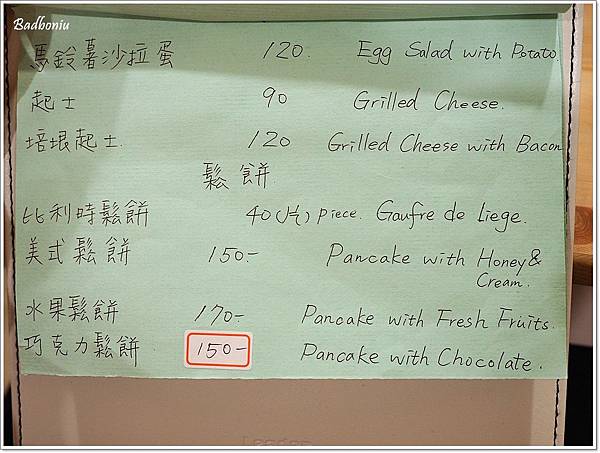 Badboniu
馬鈴薯沙拉蛋 120. Egg Salad with Potato.
起士 90 Grilled Cheese.
培根起士. 120 Grilled Cheese with Bacon
鬆餅
比利時鬆餅 40(1片) piece. Gaufre de Liege.
美式鬆餅 150.- Pancake with Honey&
Cream.
水果鬆餅 170- Pancake with Fresh Fruits.
巧克力鬆餅 150- Pancake with Chocolate.